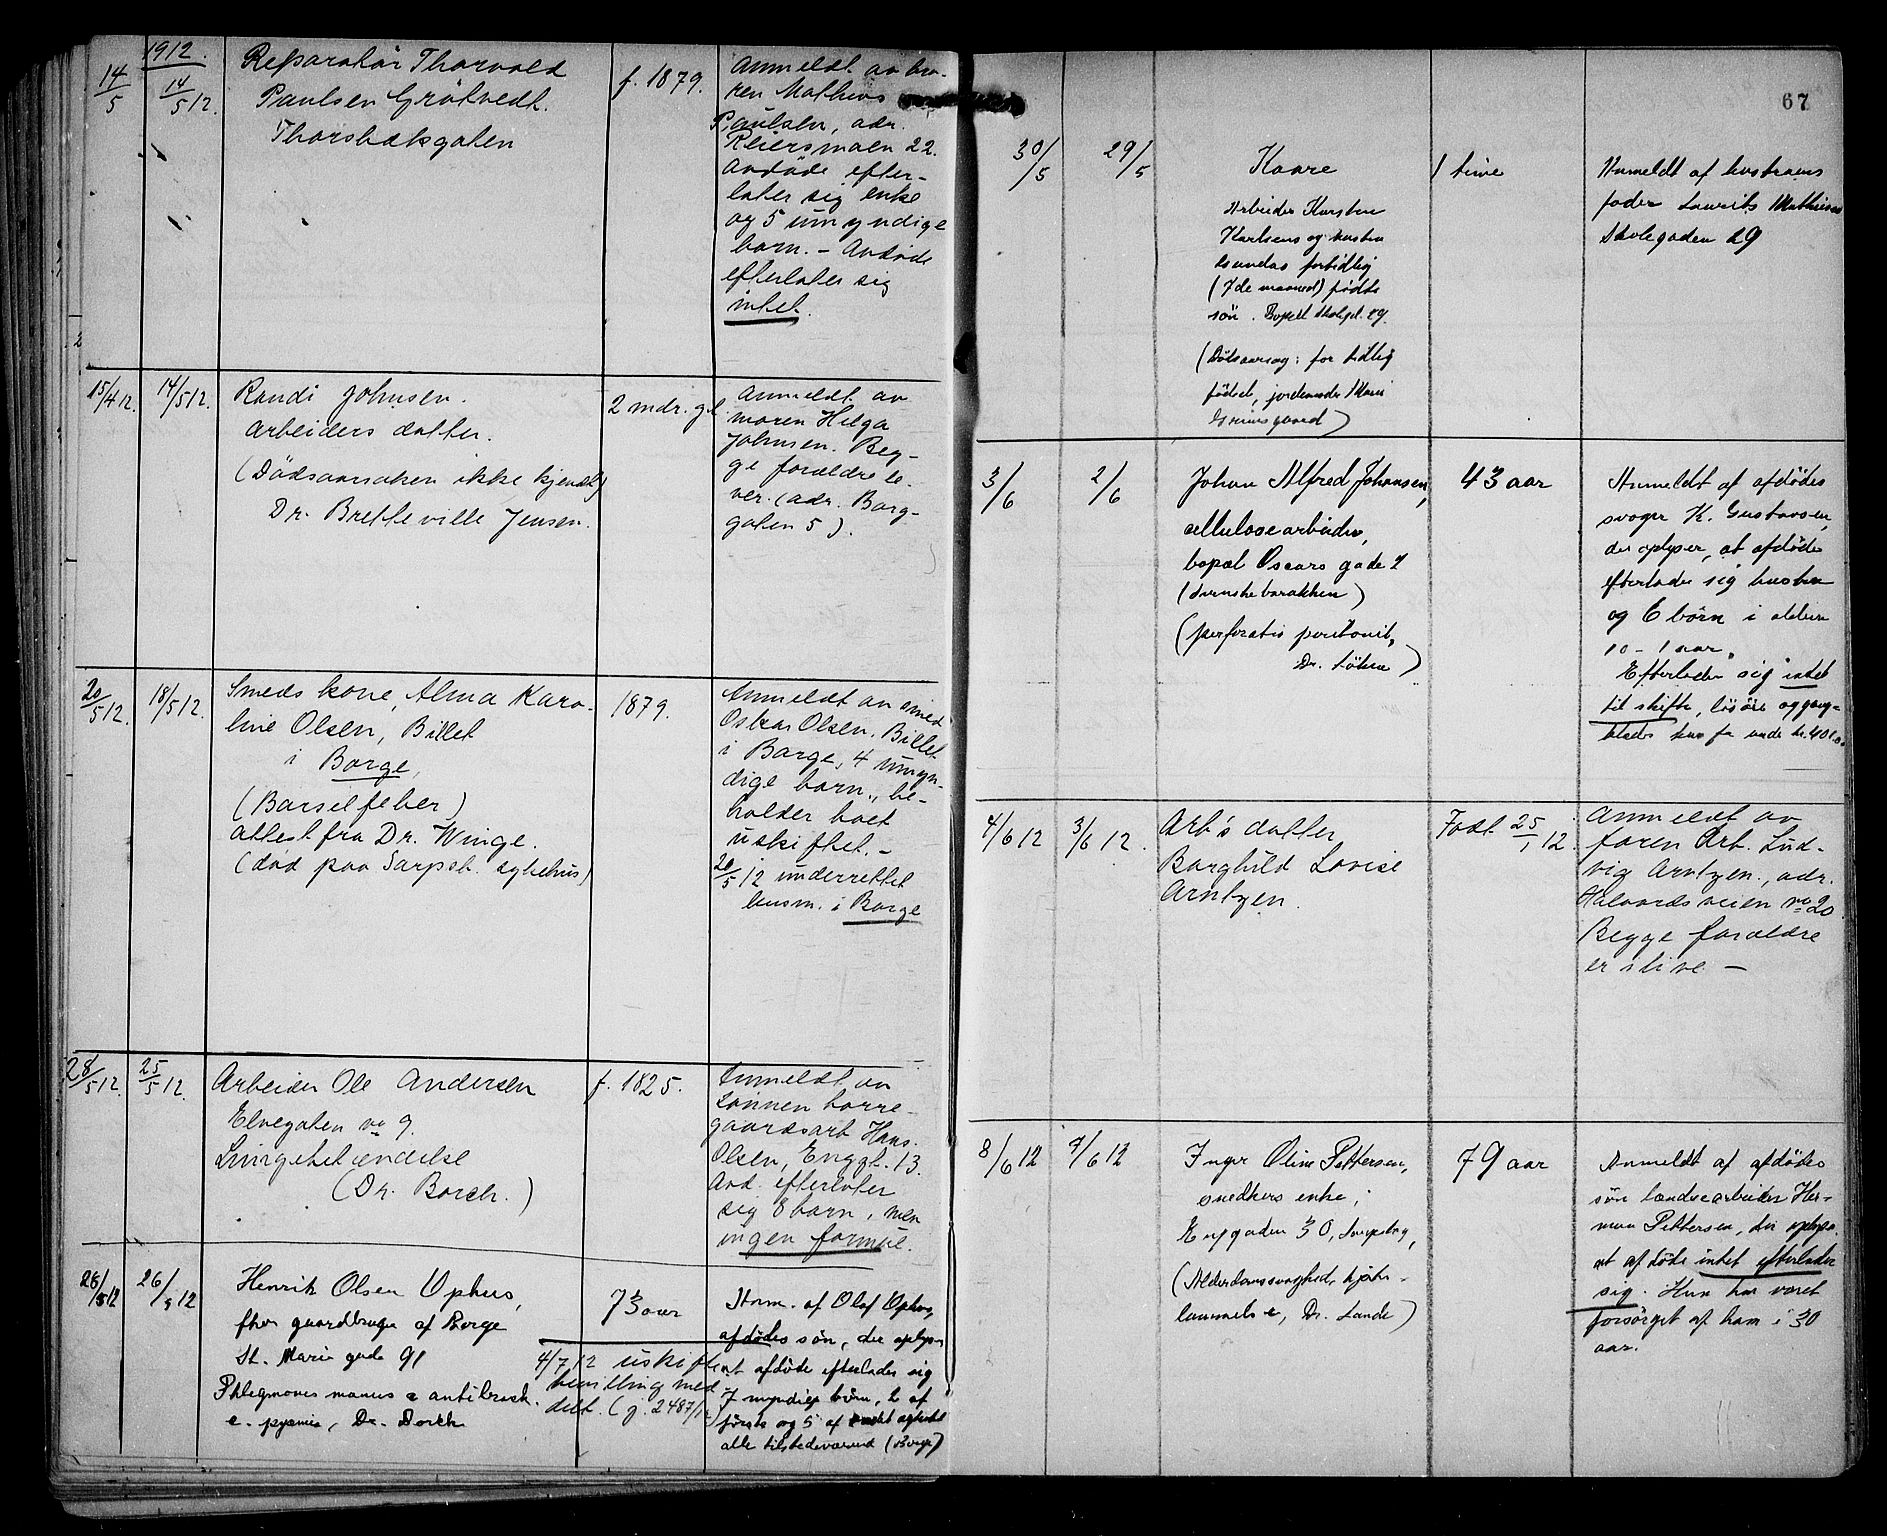 1912.
14/5
14/5 12.
Reparatør Thorvald
Paulsen Grötvedt.
Thorsbæksgaten
f. 1879.
Anmeldt av bro-
ren Mathias
Paulsen, adr.
Reiersmoen 22.
Avdöde efter-
later sig enke
og 5 umyndige
barn. - Avdöde
efterlater sig
intet.
15/4 12.
14/5 12.
Randi Johnsen.
arbeiders datter.
(Dödsaarsaken ikke kjendt)
Dr. Bretteville Jensen.
2 mdr. gl.
Anmeldt av
moren Helga
Johnsen. Beg-
ge forældre le-
ver. (adr. Borg-
gaten 5).
20/5 12.
18/5 12.
Smeds kone, Alma Karo-
line Olsen, Billet
i Borge,
(Barselfeber)
attest fra Dr. Winge.
(död paa Sarpsb. sykehus)
1879.
Anmeldt av smed
Oskar Olsen, Billet
i Borge, 4 umyn-
dige barn, be-
holder boet
uskiftet. -
20/5 12 underrettet
lensm. i Borge
28/5 12.
25/5 12.
Arbeider Ole Andersen
Elvegaten no 9.
Lungebetændelse
(Dr. Borch.)
f. 1825.
Anmeldt av
sönnen borre-
gaardsarb Hans
Olsen, Enggt. 13.
Avd. efterlater
sig 8 barn, men
ingen formue.
28/5 12
26/5 12
Henrik Olsen Ophus,
fhv. gaardbruger af Borge
St. Marie gade 91
Phlegmones manus & antibrach.
c. pyæmia, Dr. Borch
73 aar
4/7 12 uskifte
bevilling med
delt. (g. 2487/12)
Anm. af Olaf Ophus,
afdödes sön, der oplyser
at afdöde efterlader sig
7 myndige börn, 2 af
förste og 5 af andet egteskab
alle tilstedeværend (Borge)
67
30/5
29/5
Kaare
Arbeider Karsten
Karlsens og hustru
fortidlig
(7de maaned) födte
sön. Bopæl Skolegd. 29.
(Dödsaarsag: for tidlig
födsel, jordemoder Marie
Grimsgaard)
1 time
Anmeldt af hustruens
fader Laurits Mathisen
Skolegaden 29
3/6
2/6
Johan Alfred Johansen,
cellulosearbeider,
bopæl Oscars gade 2
(Svenskebarakken)
(perforatio peritonit,
Dr. Löken)
43 aar
Anmeldt af afdödes
svoger K. Gustavsen,
der oplyser, at afdöde
efterlader sig hustru
og 6 börn i alderen
10 - 1 aar.
Efterlader sig intet
til skifte, lösöre og gang-
klæder kun for under kr. 400.00
4/6 12
3/6 12.
Arb's datter
Borghild Lovise
Arntzen.
Födt 25/1 12.
Anmeldt av
faren Arb. Lud-
vig Arntzen., adr.
Halvardsveien no 20
Begge forældre
er i live -
8/6 12
7/6 12
Inger Oline Pettersen,
snedkers enke,
Enggaden 30, Sarpsborg,
(Alderdomssvaghed, hjerte-
lammelse, Dr. Lande)
79 aar
Anmeldt af afdödes
sön landsearbeider Her-
man Pettersen, der oplyser,
at afdöde intet efterlader
sig. Hun har været
forsörget af ham i 30
aar.